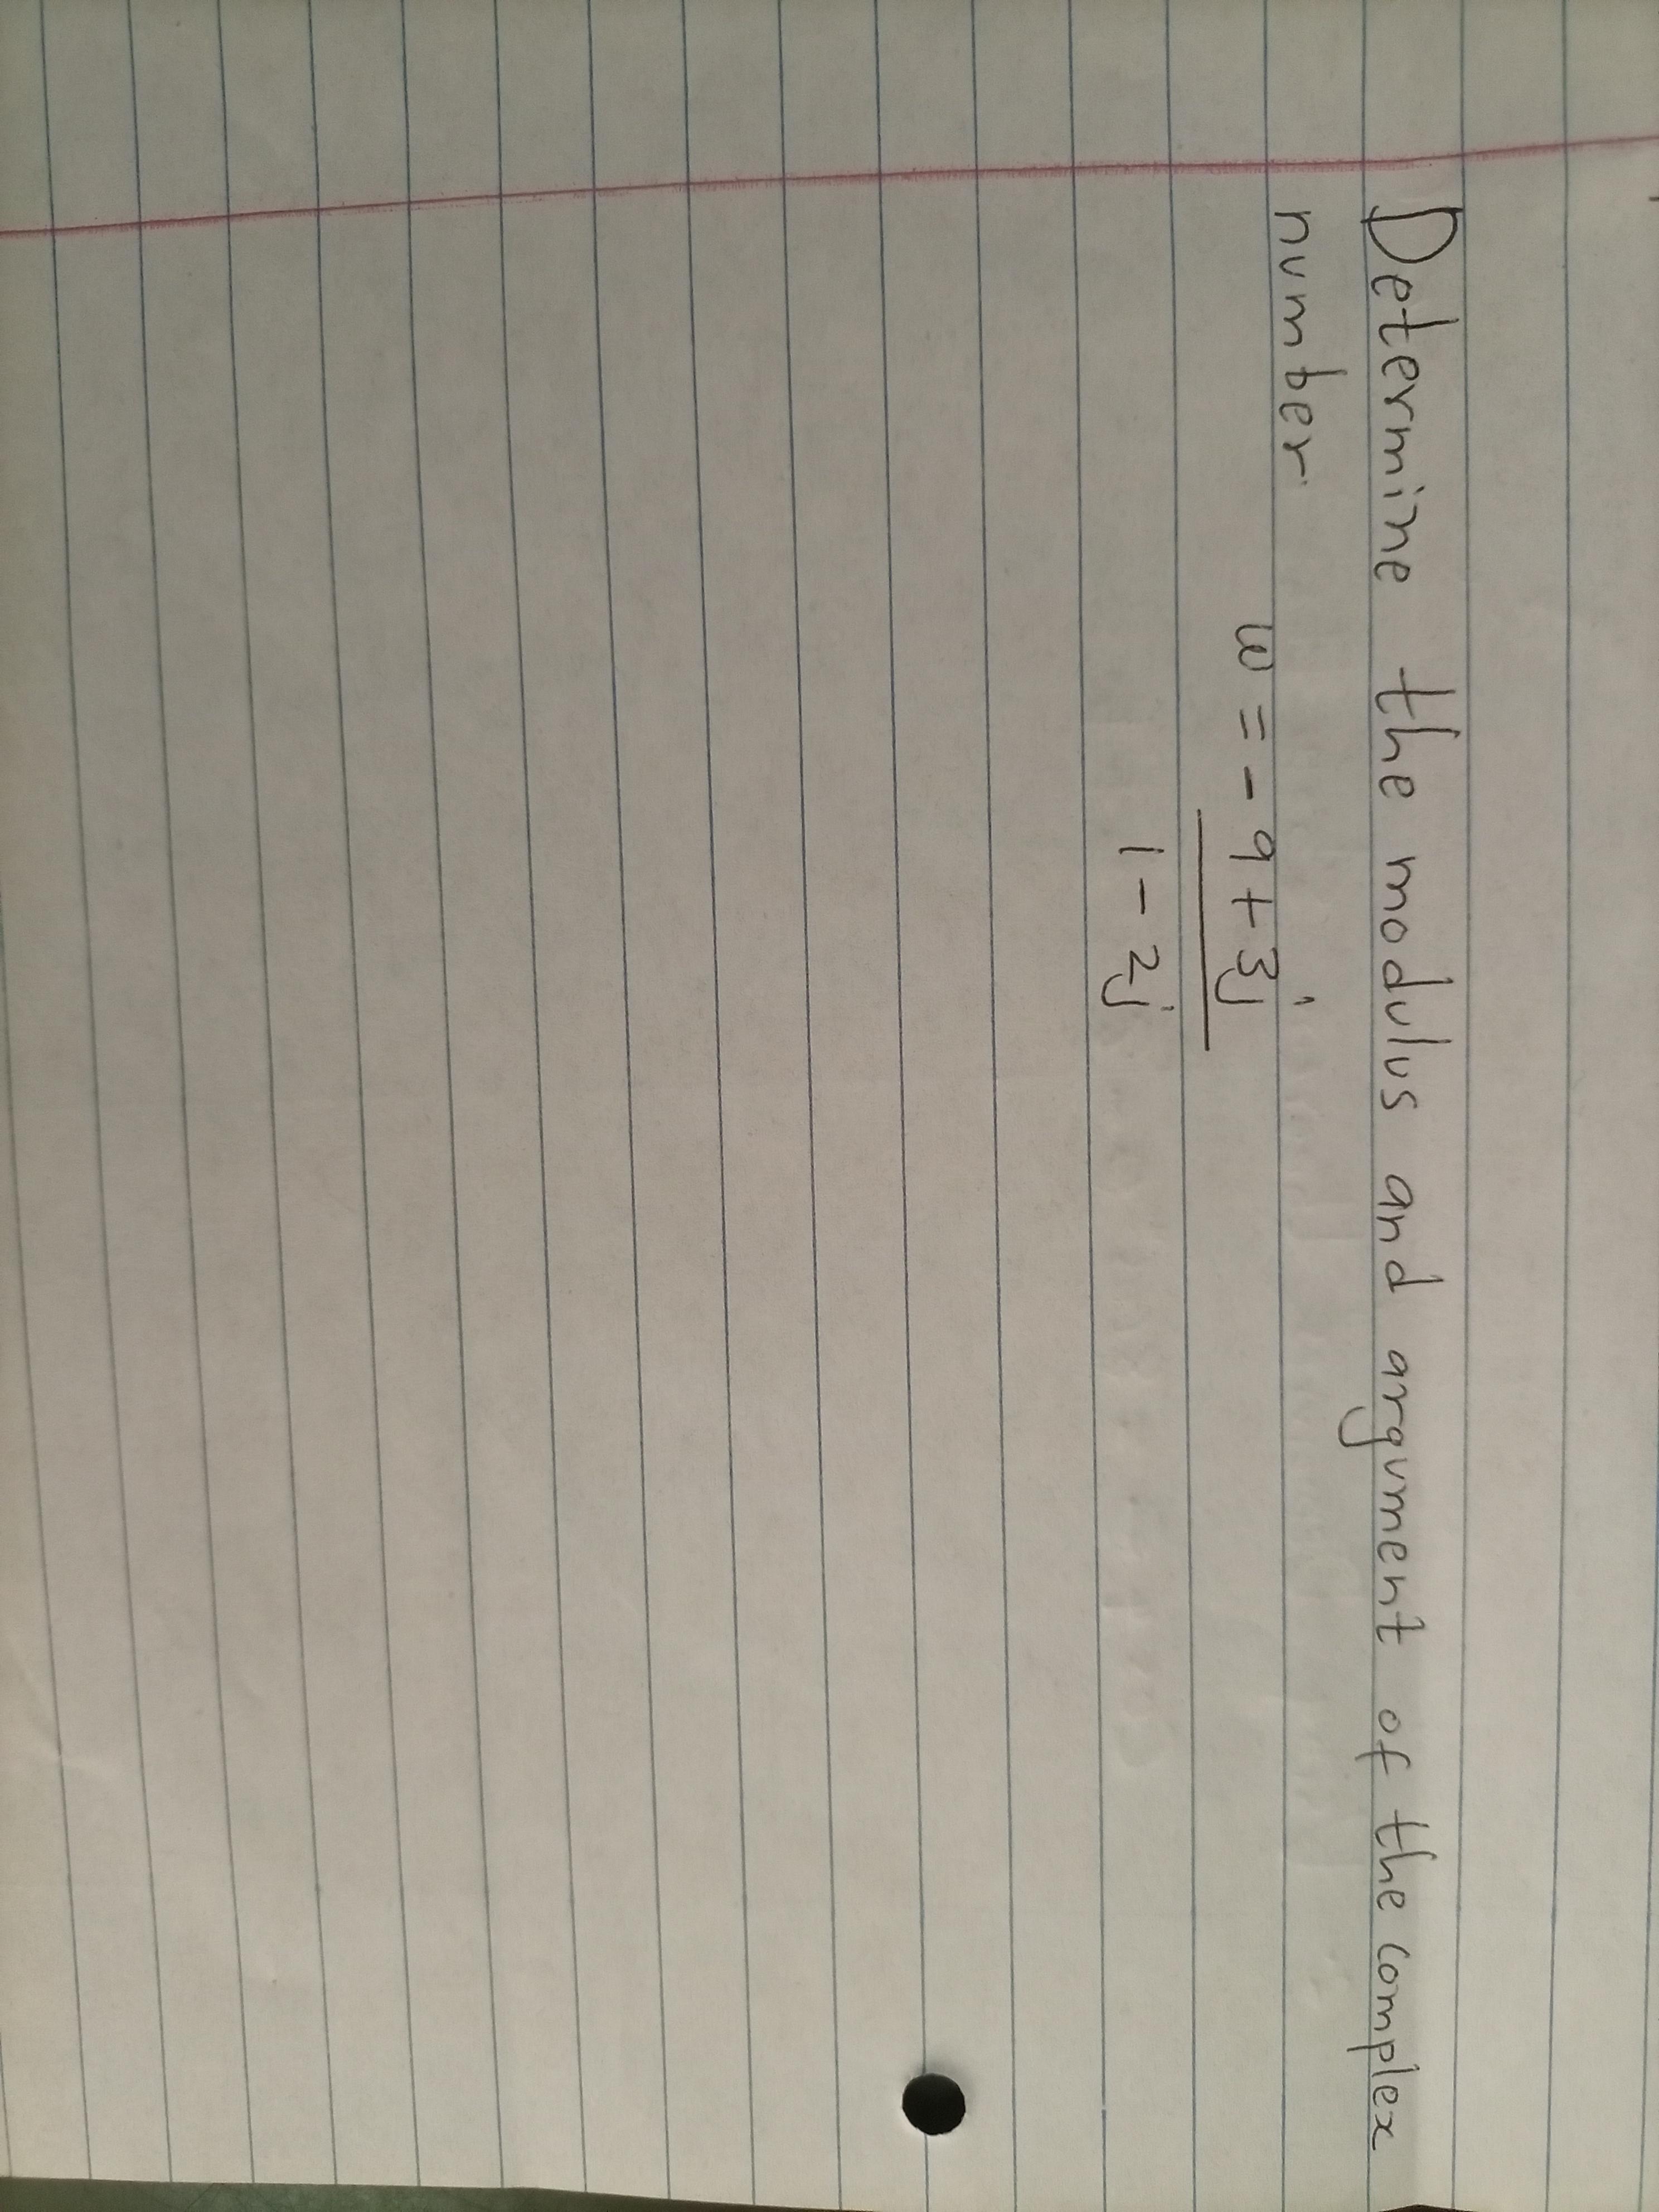 Determine the modulus and argument of the complex
number
w = - 9 + 3j
1 - 2j